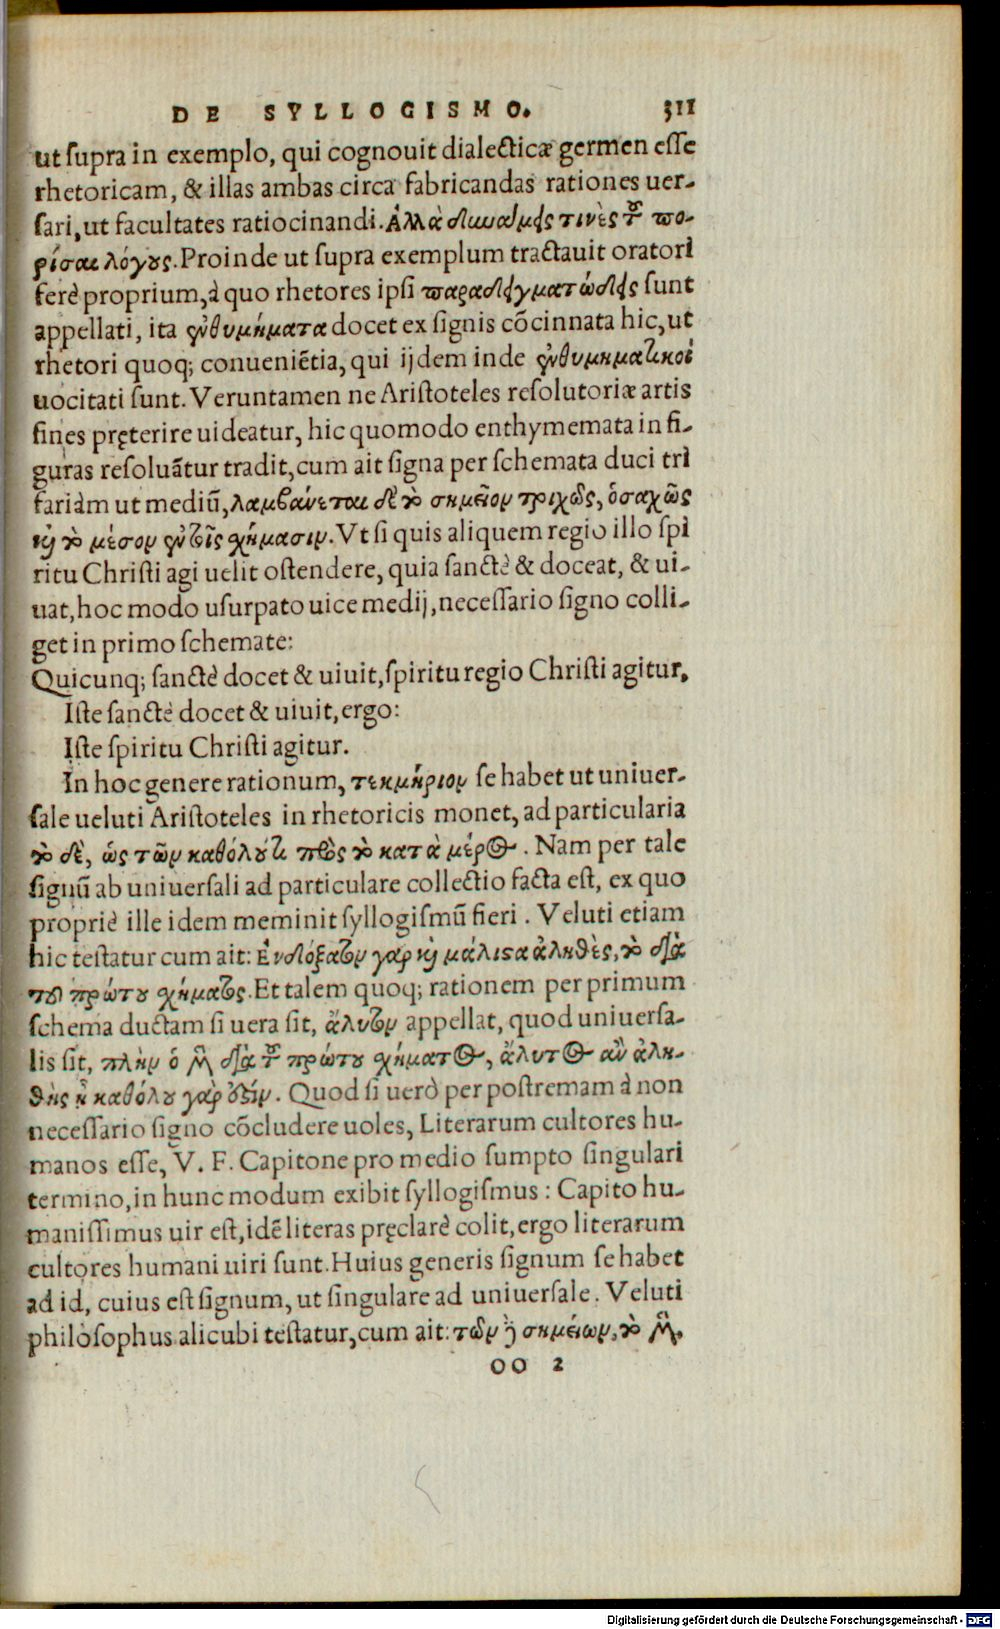 DE SYLLOGISMO. 311
ut supra in exemplo, qui cognouit dialecticæ germen esse
rhetoricam, & illas ambas circa fabricandas rationes uer-
sari, ut facultates ratiocinandi. Ἀλλὰ δυνάμεις τινὲς τοῦ πο-
ρίσαι λόγους. Proinde ut supra exemplum tractauit oratori
ferè proprium, à quo rhetores ipsi παραδειγματώδεις sunt
appellati, ita ἐνθυμήματα docet ex signis cõcinnata hic, ut
rhetori quoq; conueniẽtia, qui ijdem inde ἐνθυμηματικοὶ
uocitati sunt. Veruntamen ne Aristoteles resolutoriæ artis
fines pręterire uideatur, hic quomodo enthymemata in fi-
guras resoluãtur tradit, cum ait signa per schemata duci tri
fariàm ut mediũ, λαμβάνεται δὲ τὸ σημεῖον τριχῶς, ὁσαχῶς
καὶ τὸ μέσον ἐν τοῖς χήμασιν. Vt si quis aliquem regio illo spi
ritu Christi agi uelit ostendere, quia sanctè & doceat, & ui-
uat, hoc modo usurpato uice medij, necessario signo colli-
get in primo schemate:
Quicunq; sanctè docet & uiuit, spiritu regio Christi agitur.
Iste sanctè docet & uiuit, ergo:
Iste spiritu Christi agitur.
In hoc genere rationum, τεκμήριον se habet ut uniuer-
sale ueluti Aristoteles in rhetoricis monet, ad particularia
τὸ δὲ, ὡς τῶν καθόλου τι πρὸς τὸ κατὰ μέρος. Nam per tale
signũ ab uniuersali ad particulare collectio facta est, ex quo
propriè ille idem meminit syllogismũ fieri. Veluti etiam
hic testatur cum ait: Ἐνδόξατον γὰρ καὶ μάλιστα ἀληθὲς, τὸ διὰ
τοῦ πρώτου χήματος. Et talem quoq; rationem per primum
schema ductam si uera sit, ἄλυτον appellat, quod uniuersa-
lis sit, πλὴν ὁ μὲν διὰ τοῦ πρώτου χήματος, ἄλυτος ἂν ἀλη-
θὴς ᾖ καθόλου γὰρ ὅστιν. Quod si uerò per postremam à non
necessario signo cõcludere uoles, Literarum cultores hu-
manos esse, V. F. Capitone pro medio sumpto singulari
termino, in hunc modum exibit syllogismus: Capito hu-
manissimus uir est, idẽ literas pręclarè colit, ergo literarum
cultores humani uiri sunt. Huius generis signum se habet
ad id, cuius est signum, ut singulare ad uniuersale. Veluti
philosophus alicubi testatur, cum ait: τῶν δὲ σημείων, τὸ μὲν.
OO 2
Digitalisierung gefördert durch die Deutsche Forschungsgemeinschaft - DFG